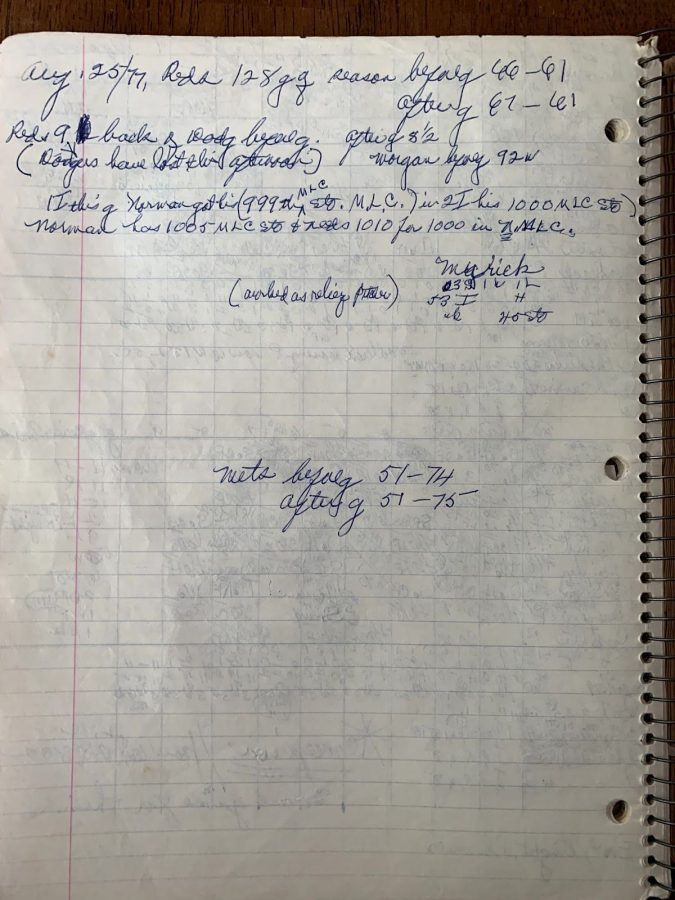 Aug. 25/77, Reds 128 g of season before g 66-61
after g 67-61
Reds 9 back of Dodg before g. after g 8 1/2
(Dodgers have lost this afternoon) Morgan before g 92 w
(In this g Norman got his (999th MLC sto. M.L.C.) in 2 I his 1000 MLC sto)
Norman has 1005 MLC sto & needs 1010 for 1000 in N.M.L.C.
(worked as relief pitcher)
1 w 1 L
53 I H
45 sto
Mets before g 51-74
after g 51-75